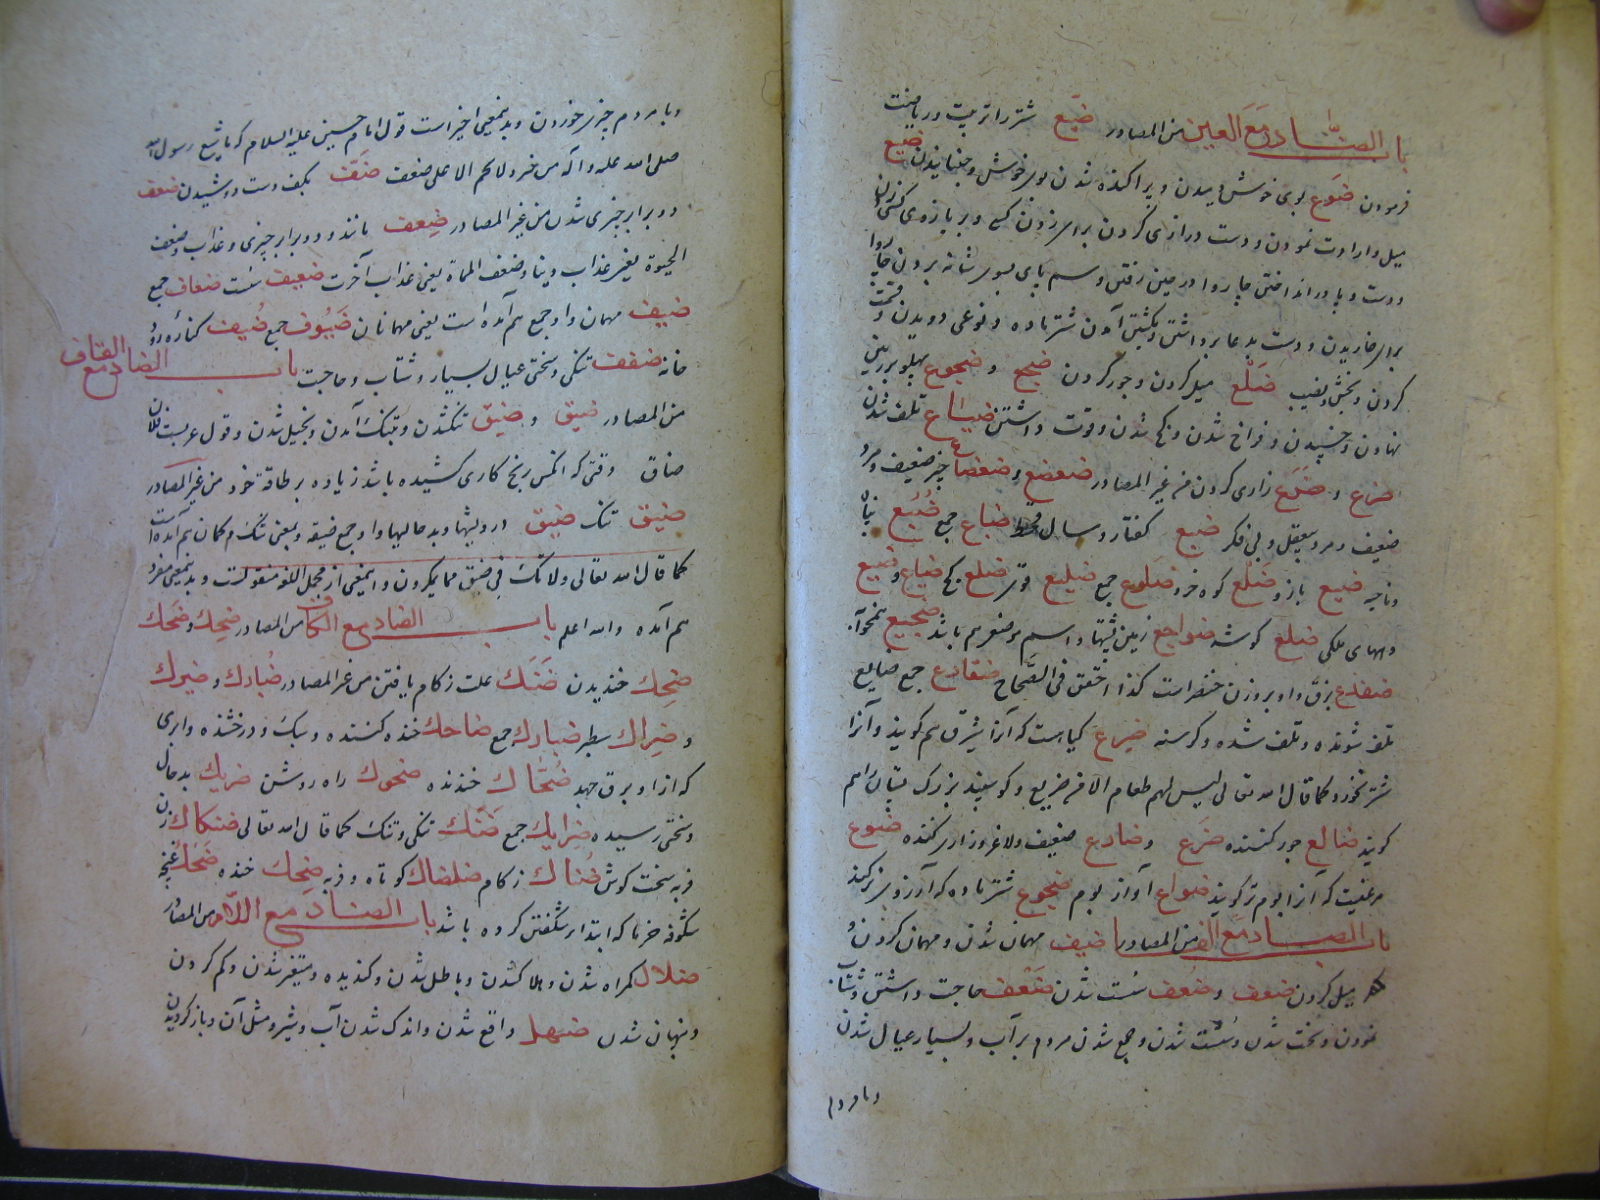 باب الضاد مع العین من المصادر ضبع شتر را تربیت و ریاضت
فرمودن ضوع بوی خوش دمیدن و پراکنده شدن بوی خوش و جنبانیدن ضبع
میل و ارادت نمودن و دست درازی کردن برای زدن کسی و بر بازه‌ی کسی زدن
و دست و پا در انداختن چاروا در حین رفتن و سم پای بسوی شانه بردن چاروا
برای خاریدن و دست بدعا برداشتن و بکشتی آمدن شتر ماده و نوعی دویدن و قسمت
کردن و بخش و نصیب ضلع میل کردن و جور کردن ضجع و ضجوع پهلو بر زمین
نهادن و خسپیدن و فراخ شدن و کج شدن و قوت داشتن ضیاع تلف شدن
ضرع و ضلع زاری کردن من غیر المصادر ضعضع و ضعضاع چیز ضعیف و مرد
ضعیف و مرد بیعقل و بی فکر ضبع کفتار و سال قحط ضباع جمع ضبع پناه
و ناحیه ضبع بازو ضلع کوه خرد ضلوع جمع ضلیع قوی ضلع کج ضیاع و ضیع
دههای ملکی ضلع گوشه ضواجع زمین پشتها و اسم موضعی هم باشد ضجیع همخوابه
ضفدع بزق و او بر وزن خنصر است کذا حقق فی الصحاح ضفادع جمع ضایع
تلف شونده و تلف شده و گرسنه ضریع گیاهیست که آنرا شبرق هم گویند و آنرا
شتر نخورد کما قال الله تعالی لیس لهم طعام الا من ضریع و گوسفند بزرگ پستان را هم
گویند ضالع جور کننده ضرع و ضارع ضعیف و لاغر و زاری کننده ضوع
مرغیست که آنرا بوم نر گویند ضواع آواز بوم ضبوع شتر ماده که آرزوی نر کند
باب الضاد مع الفا من المصادر ضیف مهمان شدن و مهمان کردن و
میل کردن ضعف و ضعف سست شدن ضفف حاجت داشتن و شتاب
نمودن و سخت شدن و سست شدن و جمع شدن مردم بر آب و بسیار عیال شدن
و با مردم
و با مردم چیزی خوردن و بدینمعنی اخیر است قول امام حسین علیه السلام که ما شبع رسول الله
صلی الله علیه و آله من خبز و لا لحم الا علی ضفف ضفف بکف دست دوشیدن ضعف
دو برابر چیزی شدن من غیر المصادر ضعف مانند و دو برابر چیزی و عذاب و ضعف
الحیوة یعنی عذاب دنیا و ضعف المماة یعنی عذاب آخرت ضعیف سست ضعاف جمع
ضیف مهمان و او جمع هم آمده است یعنی مهمانان ضیوف جمع ضیف کناره رود
خانه ضفف تنگی و سختی عیال بسیار و شتاب و حاجت باب الضاد مع القاف
من المصادر ضیق و ضیق تنگ شدن و بتنگ آمدن و بخیل شدن و قول عربست فلان
ضاق وقتی که انکس رنج کاری کشیده باشد زیاده بر طاقة خود من غیر المصادر
ضیق تنگ ضیق درویشها و بد حالیها و او جمع ضیقه و بمعنی تنگ و گمان هم آمده است
کما قال الله تعالی و لا تک فی ضیق مما یمکرون و اینمعنی از مجمل اللغه منقولست و بدینمعنی مفرد
هم آمده و الله اعلم باب الضاد مع الکاف من المصادر ضحک و ضحک
ضحک خندیدن ضنک علت زکام یافتن من غیر المصادر ضبارک و ضبرک
و ضبراک سطبر ضبارک جمع ضاحک خنده کننده و سبک و درخشنده و ابری
که از او برق جهد ضحاک خندنده ضحوک راه روشن ضریک بد حال
و سختی رسیده ضرایک جمع ضنک تنگی و تنگ کما قال الله تعالی ضنکاک زن
فربه سخت گوشت ضناک زکام ضلضاک کوتاه و فربه ضحک خنده ضحک غنچه
شکوفه خرما که ابتداء شگفتن کرده باشد باب الضاد مع اللام من المصادر
ضلال گمراه شدن و هلاک شدن و باطل شدن و گندیده و متغیر شدن و گم کردن
و پنهان شدن ضهل واقع شدن و اندک شدن آب و شیر و مثل آن و باز گردیدن